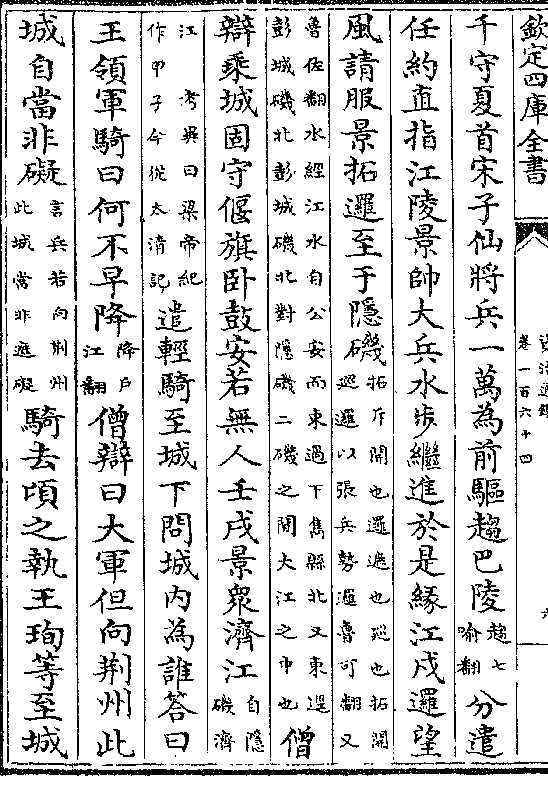 欽定四庫全書
卷一百六十四
千守夏首宋子仙將兵一萬為前驅趨巴陵趨七喻翻分遣
任約直指江陵景帥大兵水步繼進於是緣江戍邏望
風請服景拓邏至于隱磯拓斥開也邏遮也巡也拓開巡邏以張兵勢邏魯可翻又
魯佐翻水經江水自公安而東過下雋縣北又東逕彭城磯北彭城磯北對隱磯二磯之間大江之中也僧
辯乘城固守偃旗卧鼓安若無人壬戌景衆濟江自隱磯濟
江 考異曰梁帝紀作甲子今從太清記遣輕騎至城下問城内為誰答曰
王領軍騎曰何不早降降户江翻僧辯曰大軍但向荆州此
城自當非礙言兵若向荆州此城當非遮礙騎去頃之執王珣等至城